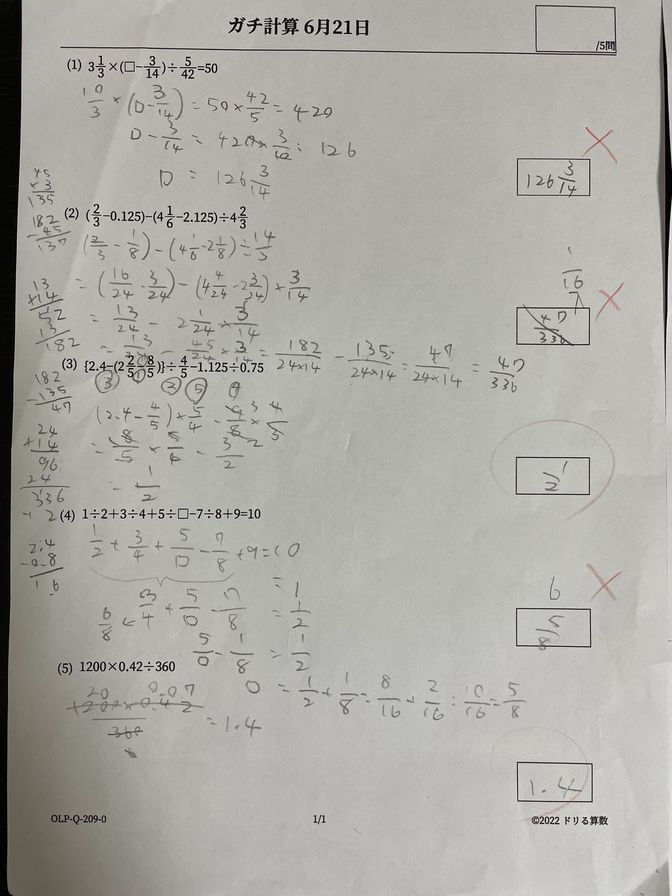 ガチ計算 6月21日
/5問
(1) 3 1/3 ×(□− 3/14)÷ 5/42 =50
10/3 × (□− 3/14) = 50 × 42/5 = 420
□ − 3/14 = 420 × 3/10 = 126
□ = 126 3/14
126 3/14
45
×3
135
182
−45
137
(2) (2/3 −0.125)−(4 1/6 −2.125)÷4 2/3
(2/3 − 1/8) − (4 1/6 − 2 1/8) ÷ 14/3
= (16/24 − 3/24) − (4 4/24 − 2 3/24) × 3/14
= 13/24 − 2 1/24 × 3/14
= 13/24 − 45/24 × 3/14 = 182/24×14 − 135/24×14 = 47/24×14 = 47/336
1/16
47/336
13
×14
52
13
182
(3) {2.4−(2 2/5 ÷ 8/5)}÷ 4/5 −1.125÷0.75
③ ① ② ⑤ ④
(2.4 − 4/5) × 5/4 − 9/8 × 4/3
= 8/5 × 5/4 − 3/2
= 1/2
1/2
182
−135
47
24
×14
96
24
336
(4) 1÷2+3÷4+5÷□−7÷8+9=10
1/2 + 3/4 + 5/□ − 7/8 + 9 = 10
= 1
6/8 ← 3/4 + 5/□ − 7/8 = 1/2
5/□ − 1/8 = 1/2
□ = 1/2 + 1/8 = 8/16 + 2/16 = 10/16 = 5/8
6
5/8
2.4
−0.8
1.6
(5) 1200×0.42÷360
20 0.07
1200×0.42
360
= 1.4
1.4
OLP-Q-209-0
1/1
©2022 ドリる算数